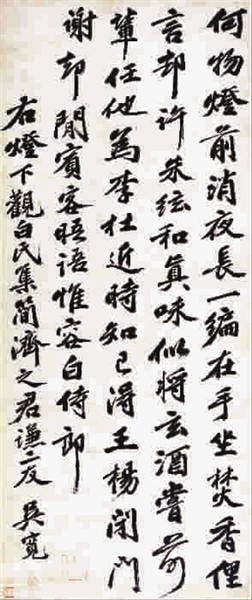 何物燈前消夜長一編在手坐焚香俚
言却許朱絃和眞味似將玄酒嘗前
輩任他為李杜近時知己得王楊閉門
謝却閒賓客晤語惟容白侍郎
右燈下觀白氏集簡濟之君謙二友 吳寬